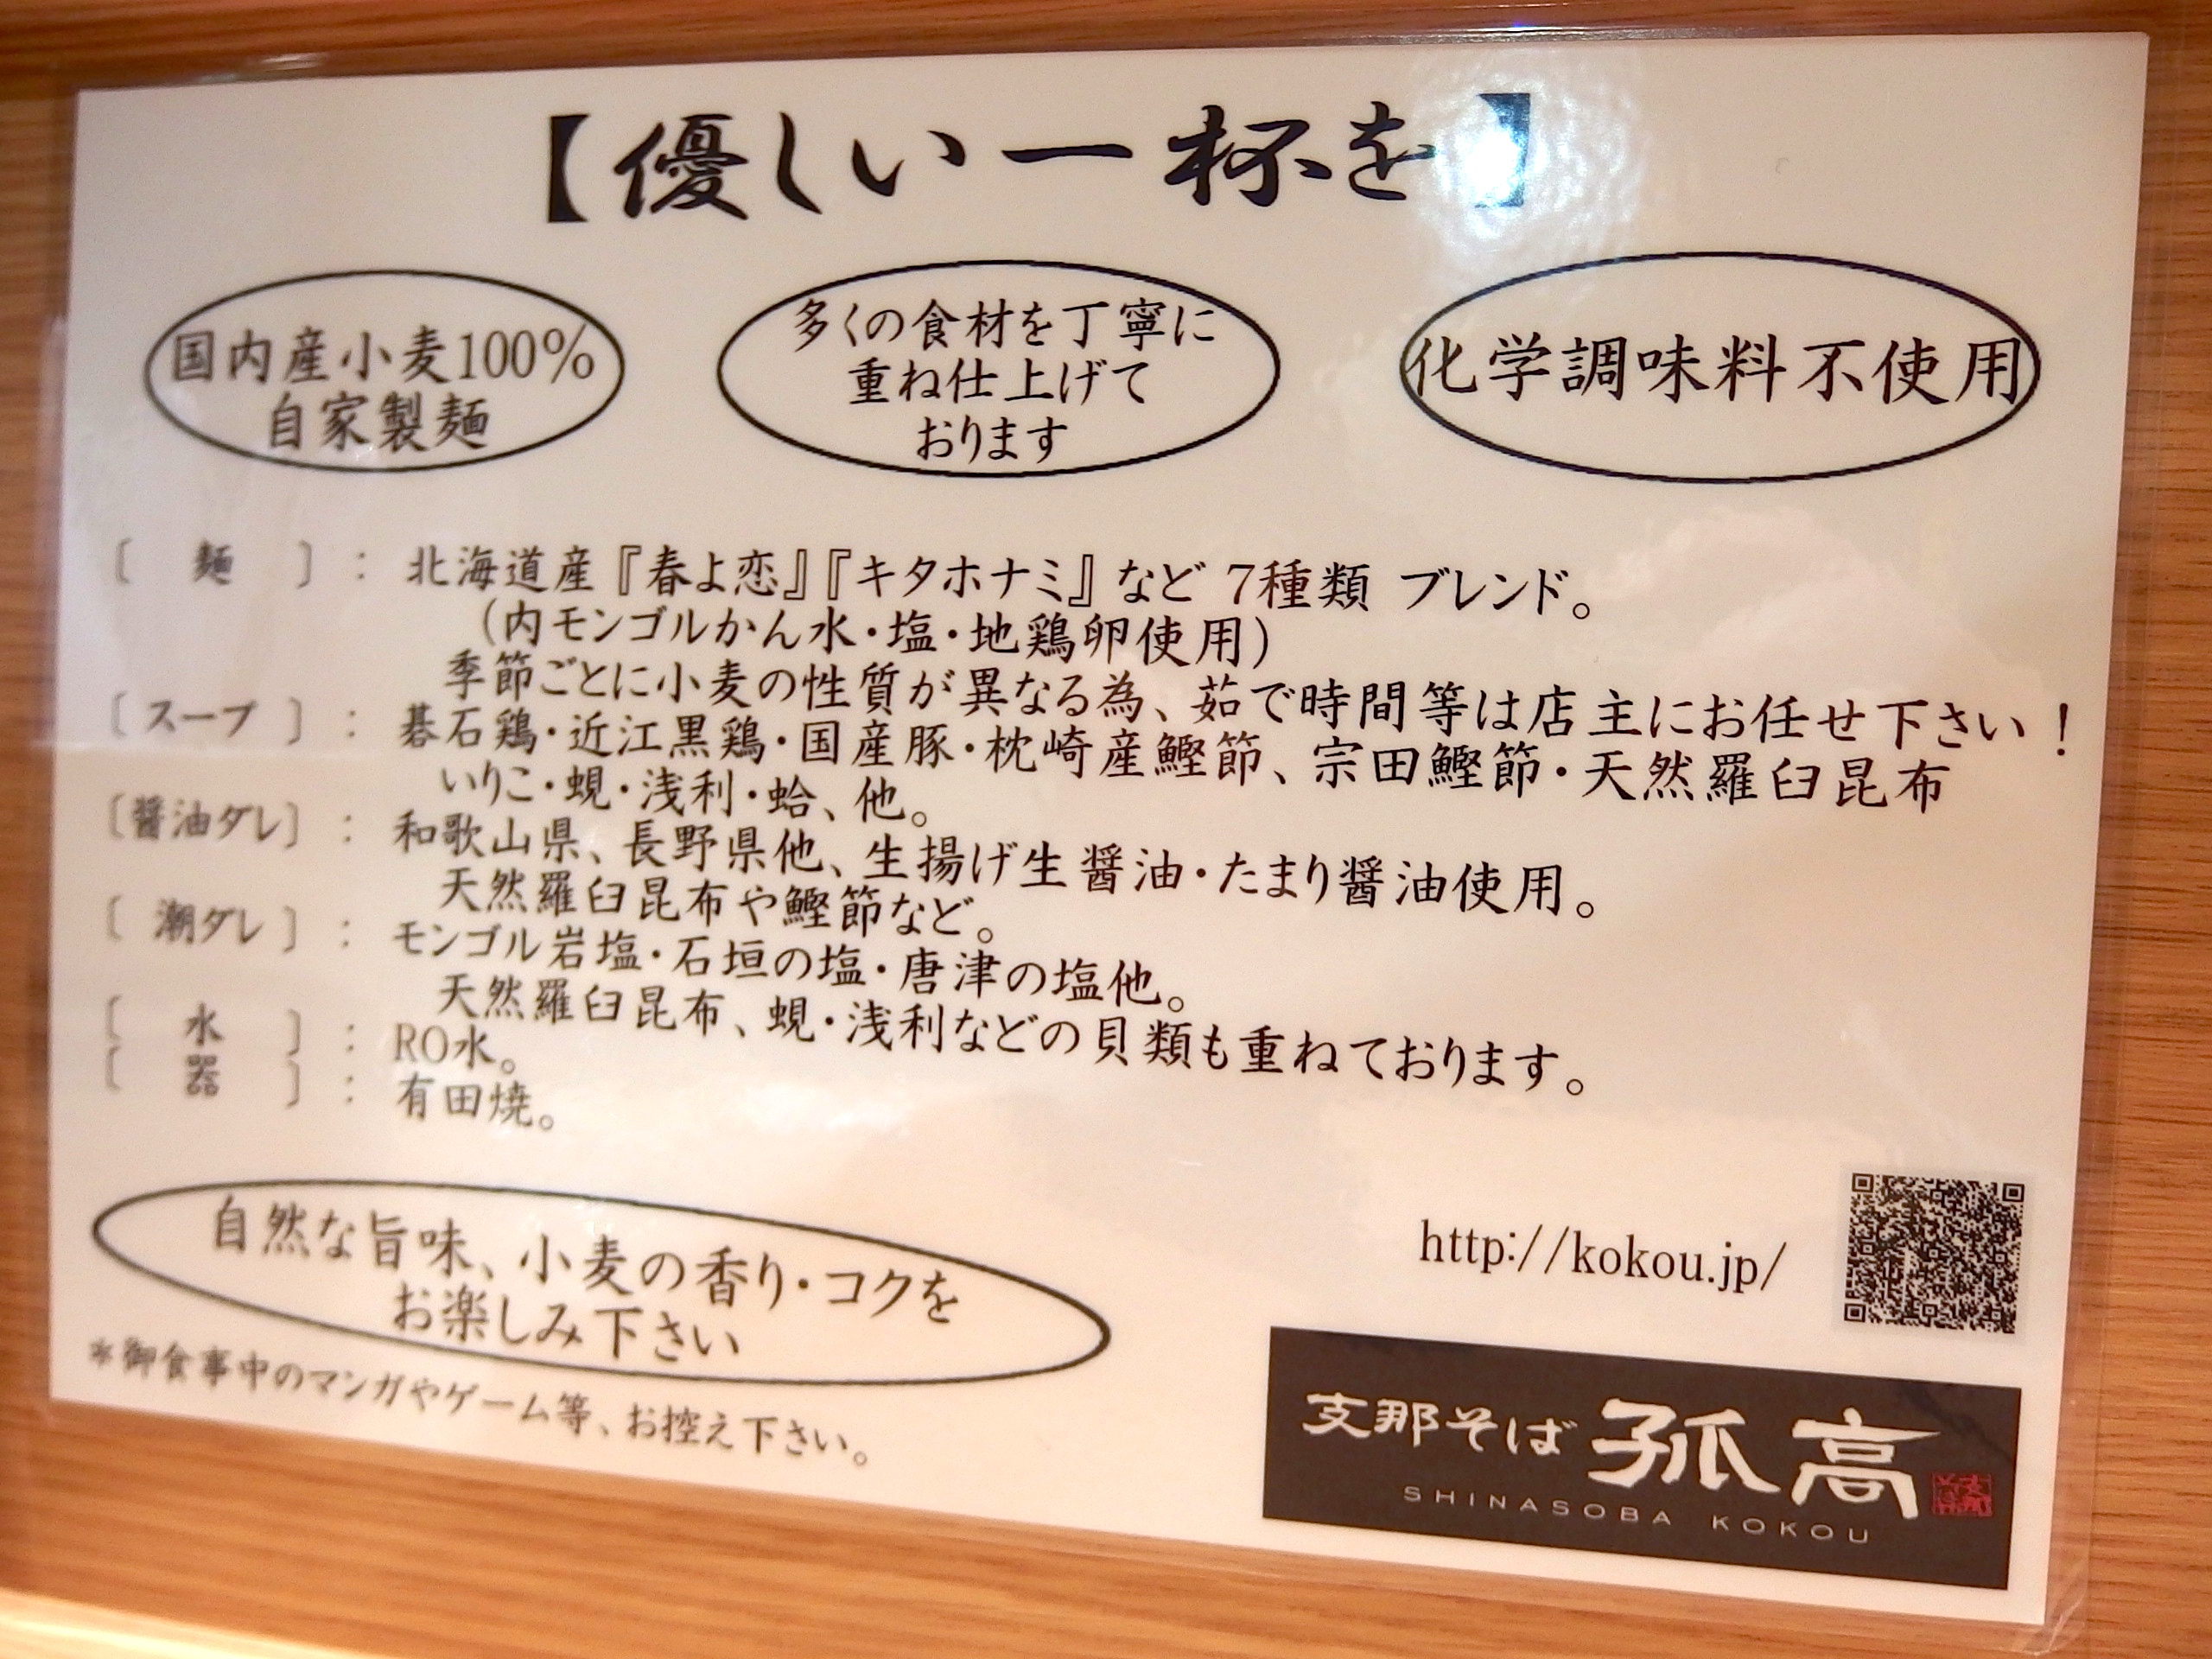 【優しい一杯を】
国内産小麦100%
自家製麺
多くの食材を丁寧に
重ね仕上げて
おります
化学調味料不使用
〔 麺 〕：北海道産『春よ恋』『キタホナミ』など 7種類 ブレンド。
（内モンゴルかん水・塩・地鶏卵使用）
季節ごとに小麦の性質が異なる為、茹で時間等は店主にお任せ下さい！
〔スープ〕：碁石鶏・近江黒鶏・国産豚・枕崎産鰹節、宗田鰹節・天然羅臼昆布
いりこ・蜆・浅利・蛤、他。
〔醤油ダレ〕：和歌山県、長野県他、生揚げ生醤油・たまり醤油使用。
天然羅臼昆布や鰹節など。
〔 潮ダレ 〕：モンゴル岩塩・石垣の塩・唐津の塩他。
天然羅臼昆布、蜆・浅利などの貝類も重ねております。
〔 水 〕：RO水。
〔 器 〕：有田焼。
自然な旨味、小麦の香り・コクを
お楽しみ下さい
＊御食事中のマンガやゲーム等、お控え下さい。
http://kokou.jp/
支那そば 孤高
SHINASOBA KOKOU